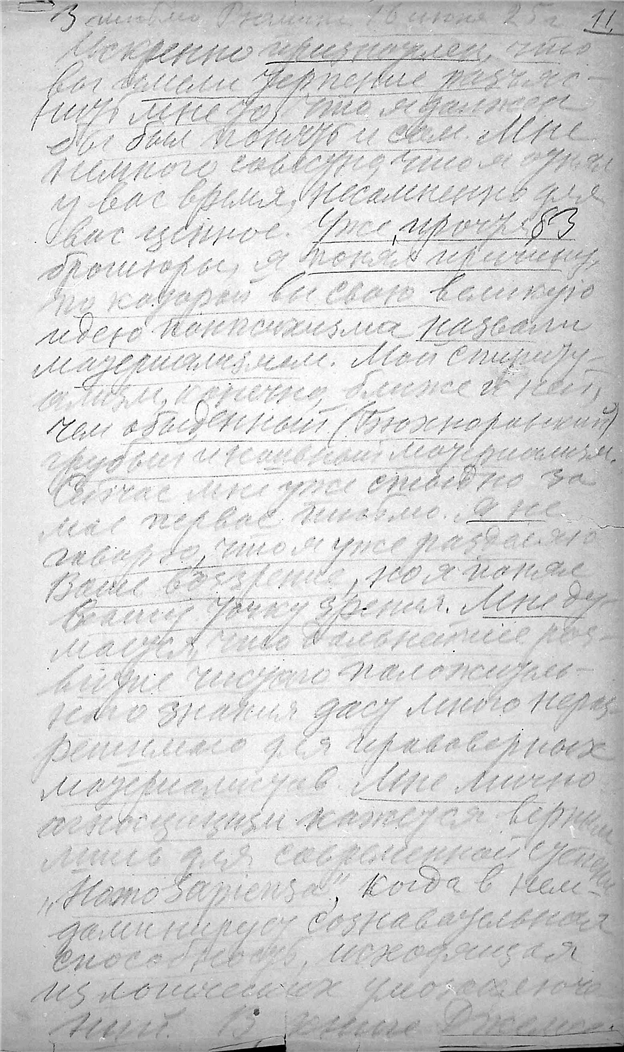 3 письмо Рюмина 16 июня 25 г
11
Искренно признателен, что
вы имели терпение разъяс-
нить мне то, что я должен
бы был понять и сам. Мне
немного совестно, что я отнял
у вас время, несомненно для
вас ценное. Уже, прочтя, 83
брошюры, я понял причину,
по которой вы свою великую
идею панпсихизма назвали
материализмом. Мой спириту-
ализм, конечно, ближе к ней,
чем обыденный (Бюхнеровский)
грубый и наивный материализм.
Сейчас мне уже стыдно за
мое первое письмо. Я не
говорю, что я уже разделяю
Ваше воззрение, но я понял
Вашу точку зрения. Мне ду-
мается, что дальнейшее раз-
витие чистого положитель-
ного знания даст много нераз-
решимого для правоверных
материалистов. Мне лично
агностицизм кажется верным
лишь для современной ступени
„Homo Sapiens'a", когда в нем
доминирует сознавательная
способность, исходящая
из логических умозаключе-
ний. В